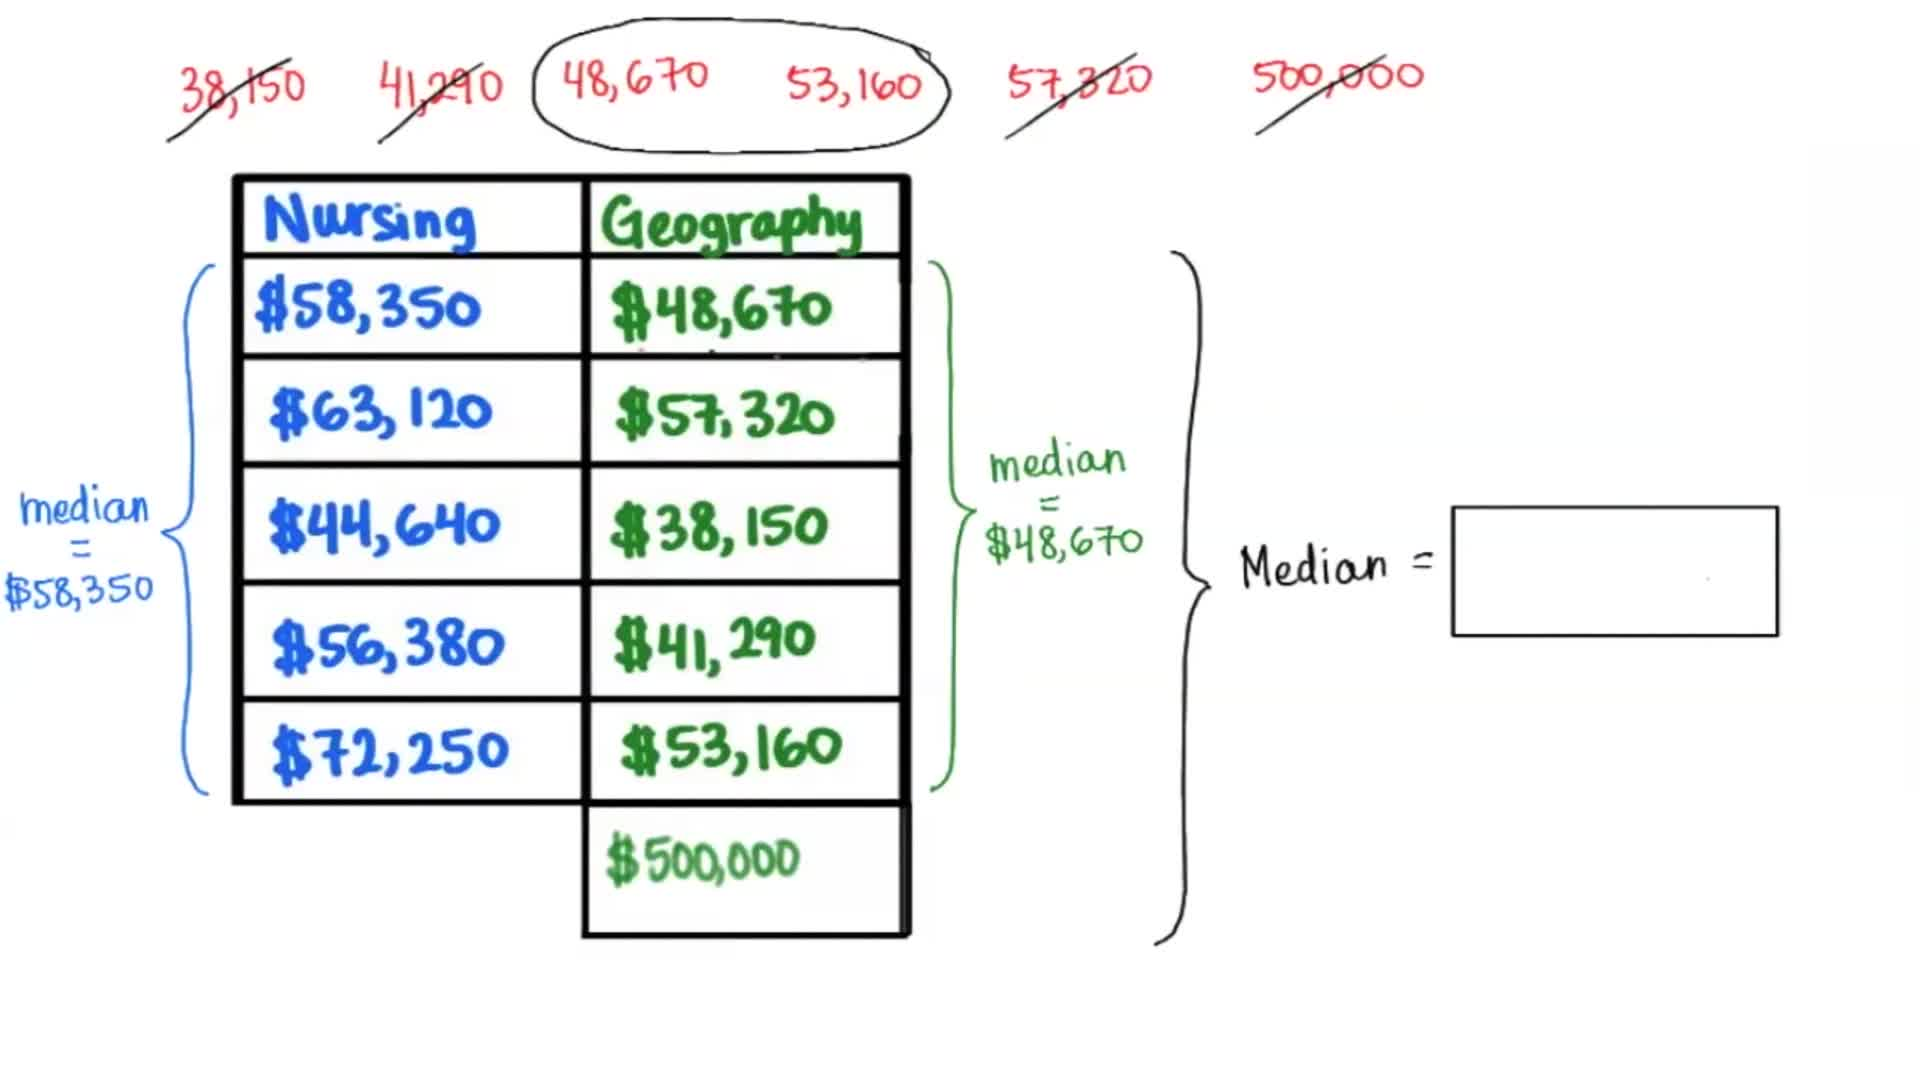 38,150 41,290 48,670 53,160 57,320 500,000
Nursing Geography
$58,350 $48,670
$63,120 $57,320
$44,640 $38,150
$56,380 $41,290
$72,250 $53,160
$500,000
median
=
$58,350
median
=
$48,670
Median =